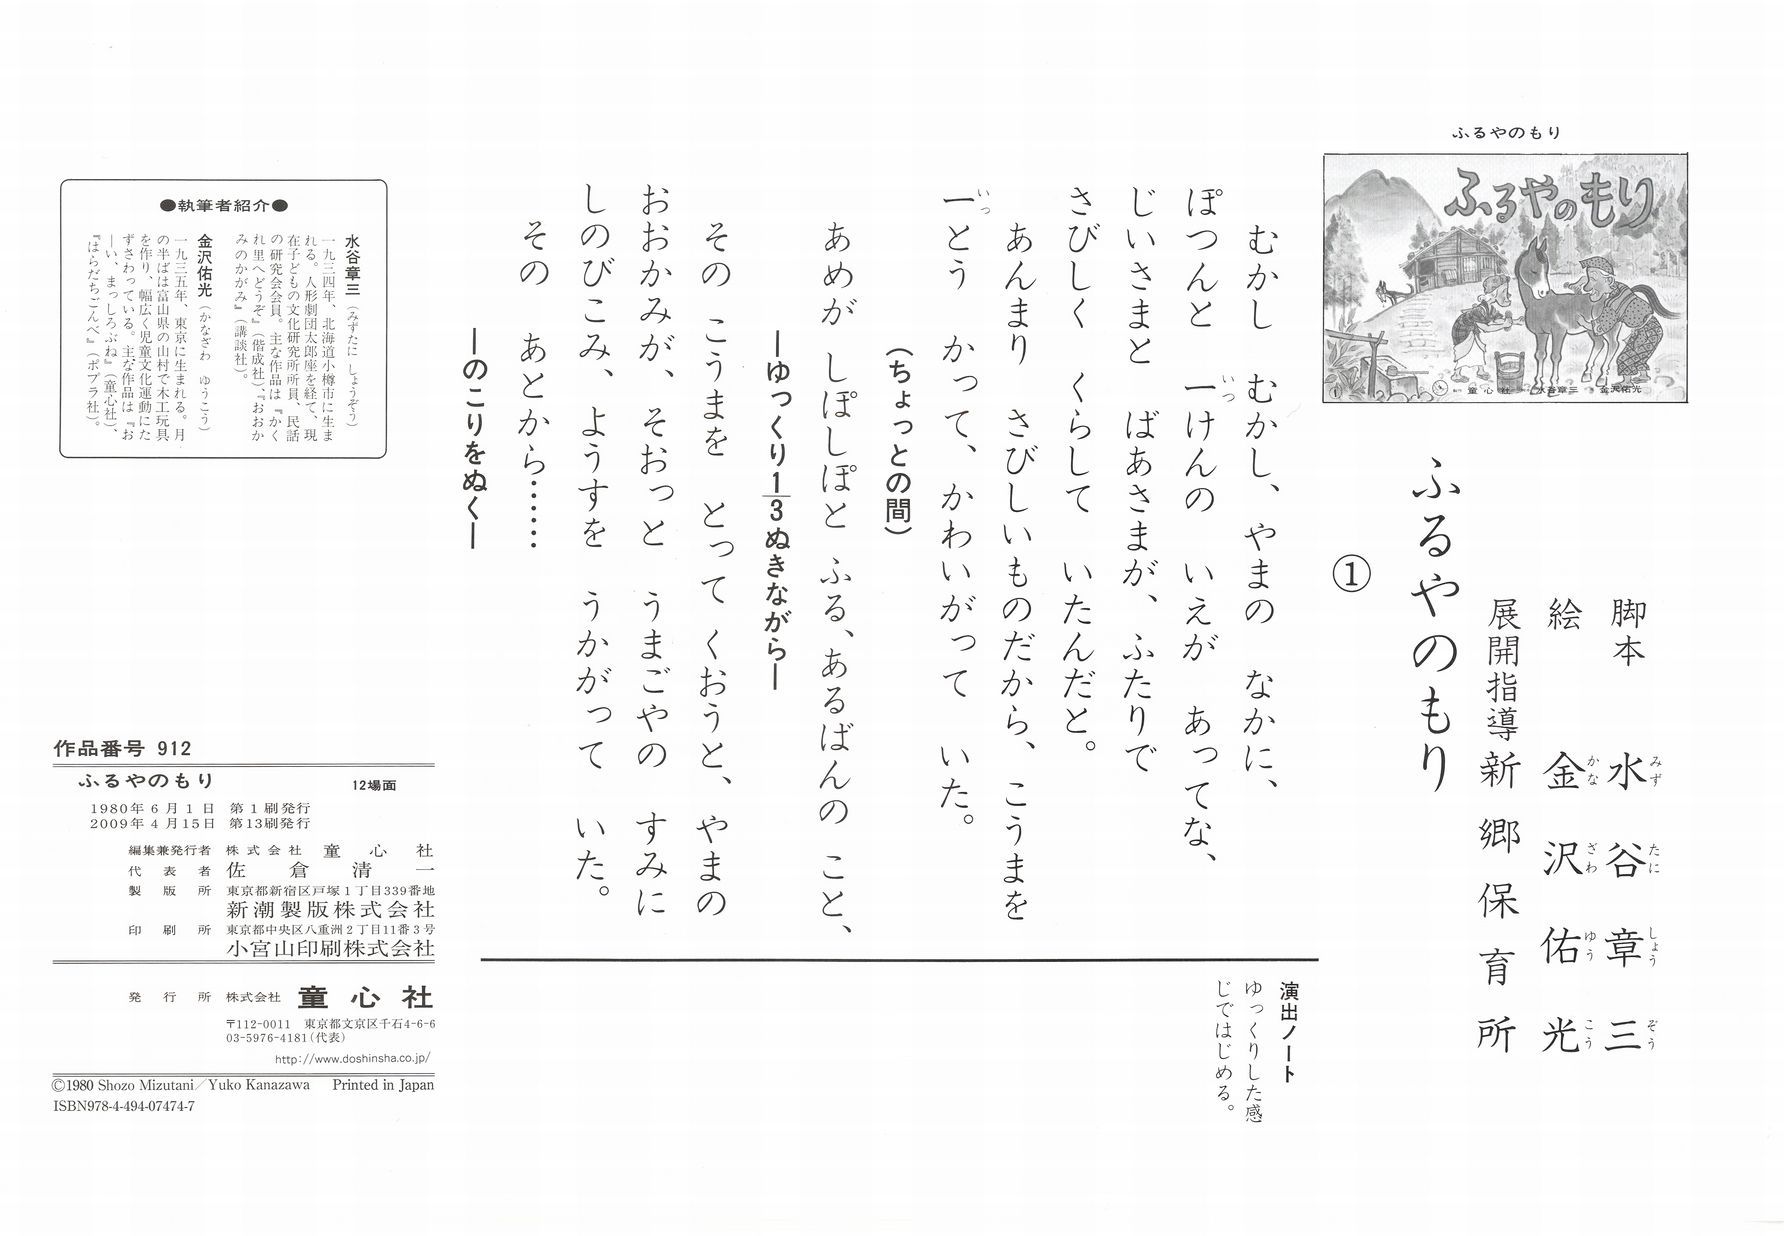 ふるやのもり
ふるやのもり
童心社 水谷章三 金沢佑光
①
脚本 水谷章三
みずたにしょうぞう
絵 金沢佑光
かなざわゆうこう
展開指導 新郷保育所
ふるやのもり
①
むかし むかし、やまの なかに、
ぽつんと 一けんの いえが あってな、
いっ
じいさまと ばあさまが、ふたりで
さびしく くらして いたんだと。
あんまり さびしいものだから、こうまを
一とう かって、かわいがって いた。
いっ
(ちょっとの間)
あめが しぽしぽと ふる、あるばんの こと、
―ゆっくり1/3ぬきながら―
その こうまを とって くおうと、やまの
おおかみが、そおっと うまごやの すみに
しのびこみ、ようすを うかがって いた。
その あとから……
―のこりをぬく―
演出ノート
ゆっくりした感
じではじめる。
●執筆者紹介●
水谷章三(みずたに しょうぞう)
一九三四年、北海道小樽市に生ま
れる。人形劇団太郎座を経て、現
在子どもの文化研究所所員、民話
の研究会会員。主な作品は『かく
れ里へどうぞ』(偕成社)、『おおか
みのかがみ』(講談社)。
金沢佑光(かなざわ ゆうこう)
一九三五年、東京に生まれる。月
の半ばは富山県の山村で木工玩具
を作り、幅広く児童文化運動にた
ずさわっている。主な作品は『お
―い、まっしろぶね』(童心社)、
『はらだちごんべ』(ポプラ社)。
作品番号 912
ふるやのもり 12場面
1980年6月1日 第1刷発行
2009年4月15日 第13刷発行
編集兼発行者 株式会社 童心社
代表者 佐倉清一
製版所 東京都新宿区戸塚1丁目339番地
新潮製版株式会社
印刷所 東京都中央区八重洲2丁目11番3号
小宮山印刷株式会社
発行所 株式会社 童心社
〒112-0011 東京都文京区千石4-6-6
03-5976-4181(代表)
http://www.doshinsha.co.jp/
©1980 Shozo Mizutani/Yuko Kanazawa Printed in Japan
ISBN978-4-494-07474-7